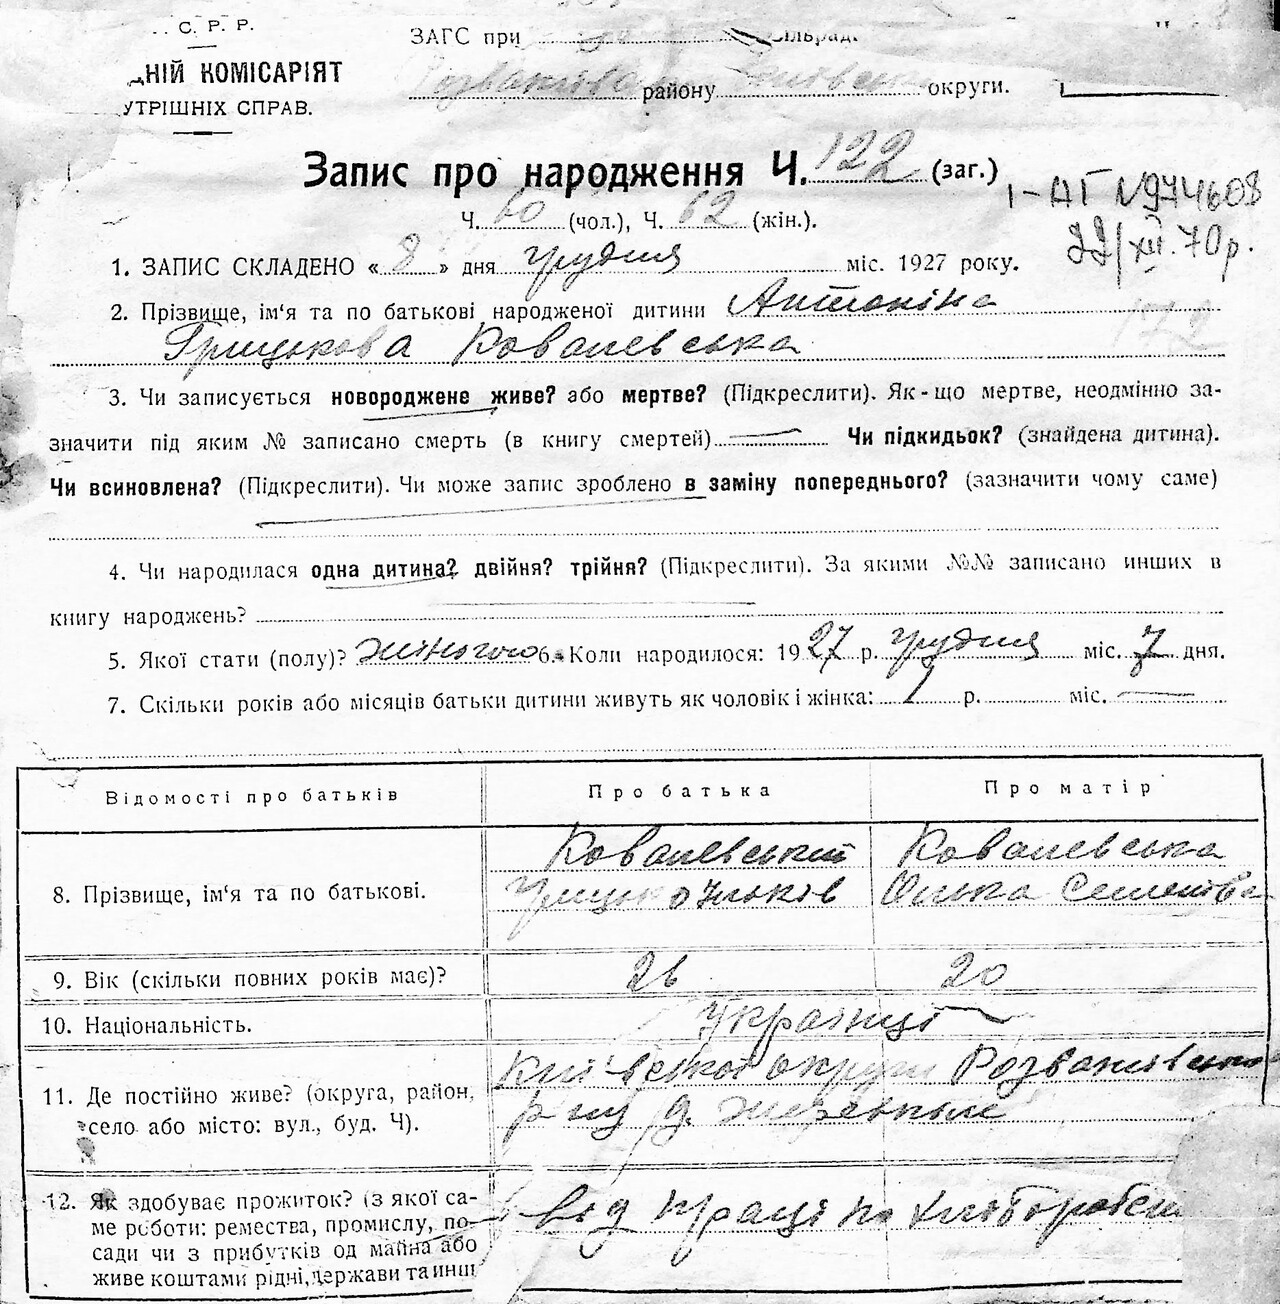 С. Р. Р.
ЗАГС при сільрад.
ДНІЙ КОМІСАРІЯТ
району округи.
УТРІШНІХ СПРАВ.
Запис про народження Ч. 122 (заг.)
І-АГ №974608
Ч. 60 (чол.), Ч. 62 (жін.).
22/XII.70р.
1. ЗАПИС СКЛАДЕНО « 8 » дня грудня міс. 1927 року.
2. Прізвище, ім‘я та по батькові народженої дитини Антоніна
172
Грицькова Ковалевська
3. Чи записується новороджене живе? або мертве? (Підкреслити). Як-що мертве, неодмінно за-
значити під яким № записано смерть (в книгу смертей) — Чи підкидьок? (знайдена дитина).
Чи всиновлена? (Підкреслити). Чи може запис зроблено в заміну попереднього? (зазначити чому саме)
4. Чи народилася одна дитина? двійня? трійня? (Підкреслити). За якими №№ записано инших в
книгу народжень?
5. Якої стати (полу)? жіночого 6. Коли народилося: 1927 р. грудня міс. 7 дня.
7. Скільки років або місяців батьки дитини живуть як чоловік і жінка: 1 р. міс. —
Відомості про батьків Про батька Про матір
Ковалевський Ковалевська
8. Прізвище, ім‘я та по батькові. Грицько Яльків Олька Семенівна
9. Вік (скільки повних років має)? 26 20
10. Національність. Українці
11. Де постійно живе? (округа, район, Київської округи Розважівсько
село або місто: вул., буд. Ч). р-ну
12. Як здобуває прожиток? (з якої са-
ме роботи: ремества, промислу, по- від праці по хліборобств
сади чи з прибутків од майна або
живе коштами рідні, держави та инш